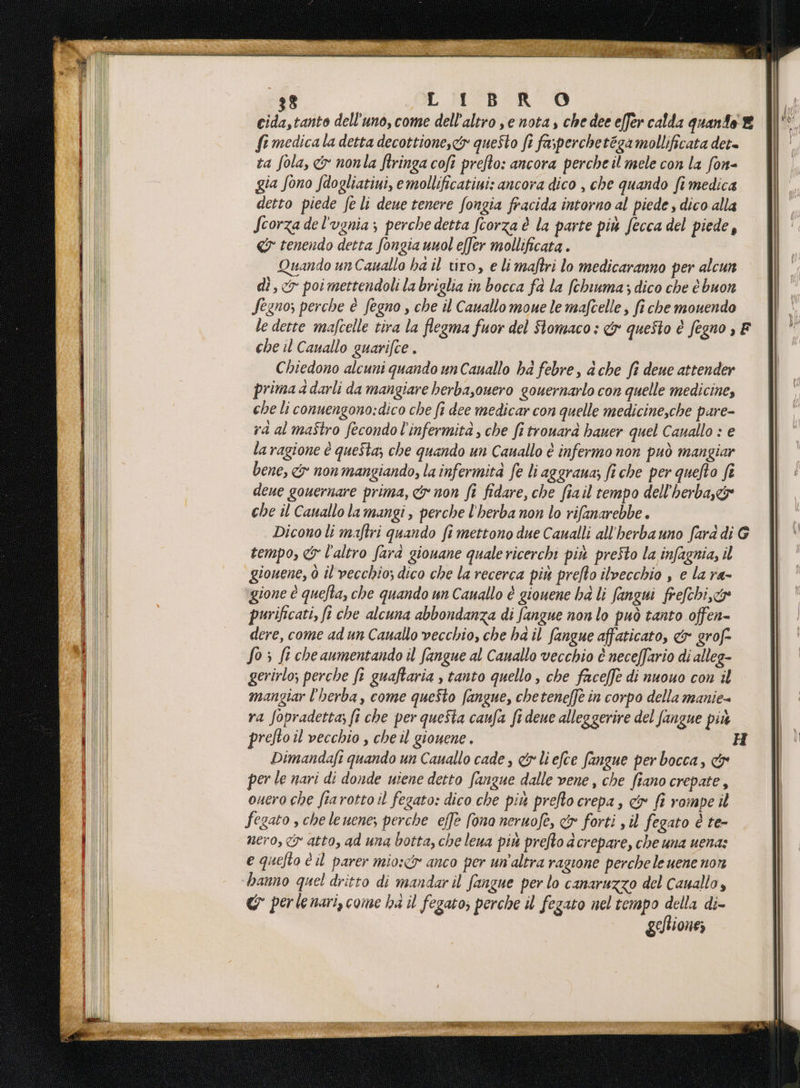 38 LIBRO
cida, tanto dell'uno, come dell'altro, e nota, che dee eſſer calda quando E
ſi medica la detta decottione, & queſto ſi fa, perche tēga mollificata det-
ta ſola, & non la ſtringa coſi preſto: ancora perche il mele con la ſon-
gia ſono ſdogliatiui, e mollificatiui: ancora dico, che quando ſi medica
detto piede ſe li deue tenere ſongia fracida intorno al piede, dico alla
ſcorza de l'vgnia; perche detta ſcorza è la parte più ſecca del piede,
& tenendo detta ſongia uuol eſſer mollificata.
Quando un Cauallo ha il tiro, e li maſtri lo medicaranno per alcun
dì, & poi mettendoli la briglia in bocca fà la ſchiuma; dico che è buon
ſegno; perche è ſegno, che il Cauallo moue le maſcelle, ſi che mouendo
le dette maſcelle tira la flegma fuor del ſtomaco: & queſto è ſegno, F
che il Cauallo guariſce.
Chiedono alcuni quando un Cauallo hà febre, à che ſi deue attender
prima à darli da mangiare herba, ouero gouernarlo con quelle medicine,
che li conuengono: dico che ſi dee medicar con quelle medicine, che pare-
rà al maſtro ſecondo l'infermità, che ſi trouarà hauer quel Cauallo: e
la ragione è queſta, che quando un Cauallo è infermo non può mangiar
bene, & non mangiando, la infermità ſe li aggraua, ſi che per queſto ſi
deue gouernare prima, & non ſi fidare, che ſia il tempo dell'herba, &
che il Cauallo la mangi, perche l'herba non lo riſanarebbe.
Dicono li maſtri quando ſi mettono due Caualli all'herba uno ſarà di G
tempo, & l'altro ſarà giouane quale ricerchi più preſto la inſagnia, il
giouene, ò il vecchio; dico che la recerca più preſto il vecchio, e la ra-
gione è queſta, che quando un Cauallo è giouene hà li ſangui freſchi, &
purificati, ſi che alcuna abbondanza di ſangue non lo può tanto offen-
dere, come ad un Cauallo vecchio, che hà il ſangue affaticato, & groſ-
ſo; ſi che aumentando il ſangue al Cauallo vecchio è neceſſario di alleg-
gerirlo; perche ſi guaſtaria, tanto quello, che faceſſe di nuouo con il
mangiar l'herba, come queſto ſangue, che teneſſe in corpo della manie-
ra ſopradetta, ſi che per queſta cauſa ſi deue alleggerire del ſangue più
preſto il vecchio, che il giouene. H
Dimandaſi quando un Cauallo cade, & li eſce ſangue per bocca, &
per le nari di donde uiene detto ſangue dalle vene, che ſiano crepate,
ouero che ſia rotto il fegato: dico che più preſto crepa, & ſi rompe il
fegato, che le uene; perche eſſe ſono neruoſe, & forti, il fegato è te-
nero, & atto, ad una botta, che leua più preſto à crepare, che una uena:
e queſto è il parer mio: & anco per un'altra ragione perche le uene non
hanno quel dritto di mandar il ſangue per lo canaruzzo del Cauallo,
& per le nari, come hà il fegato; perche il fegato nel tempo della di-
geſtione,